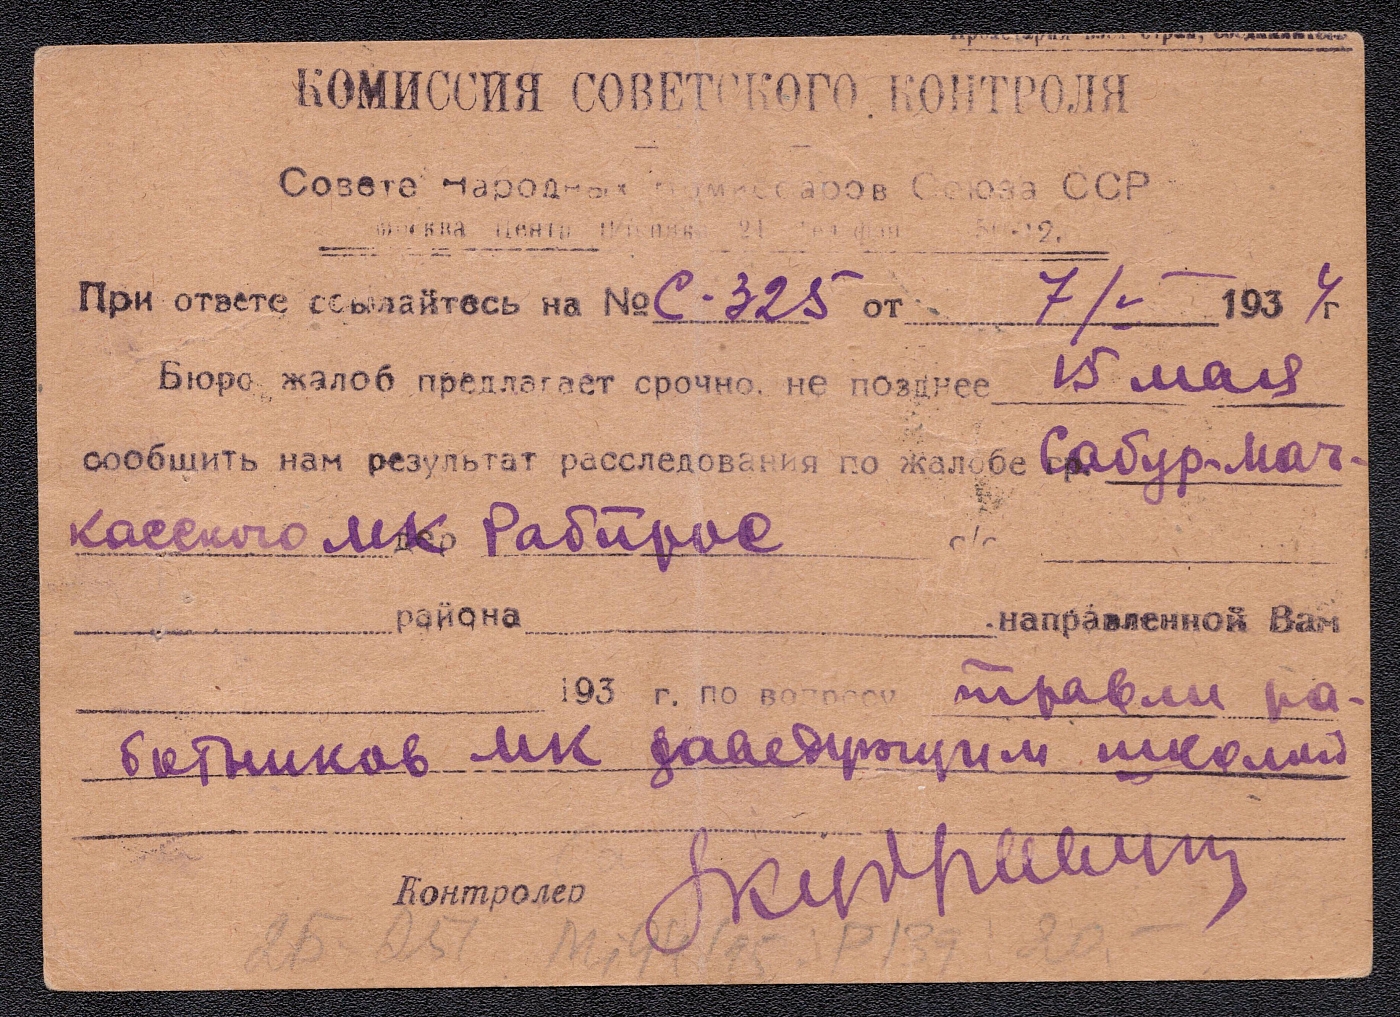 Пролетарии всех стран, соединяйтесь
КОМИССИЯ СОВЕТСКОГО КОНТРОЛЯ
Совете Народных Комиссаров Союза ССР
Москва Центр Ильинка 21
При ответе ссылайтесь на № С-325 от 7/V 1934 г
Бюро жалоб предлагает срочно, не позднее 15 мая
сообщить нам результат расследования по жалобе гр. Сабур-Мач-
касского МК дер Рабпрос с/с
района направленной Вам
193 г. по вопросу травли ра-
ботников МК заведующим школой
Контролер